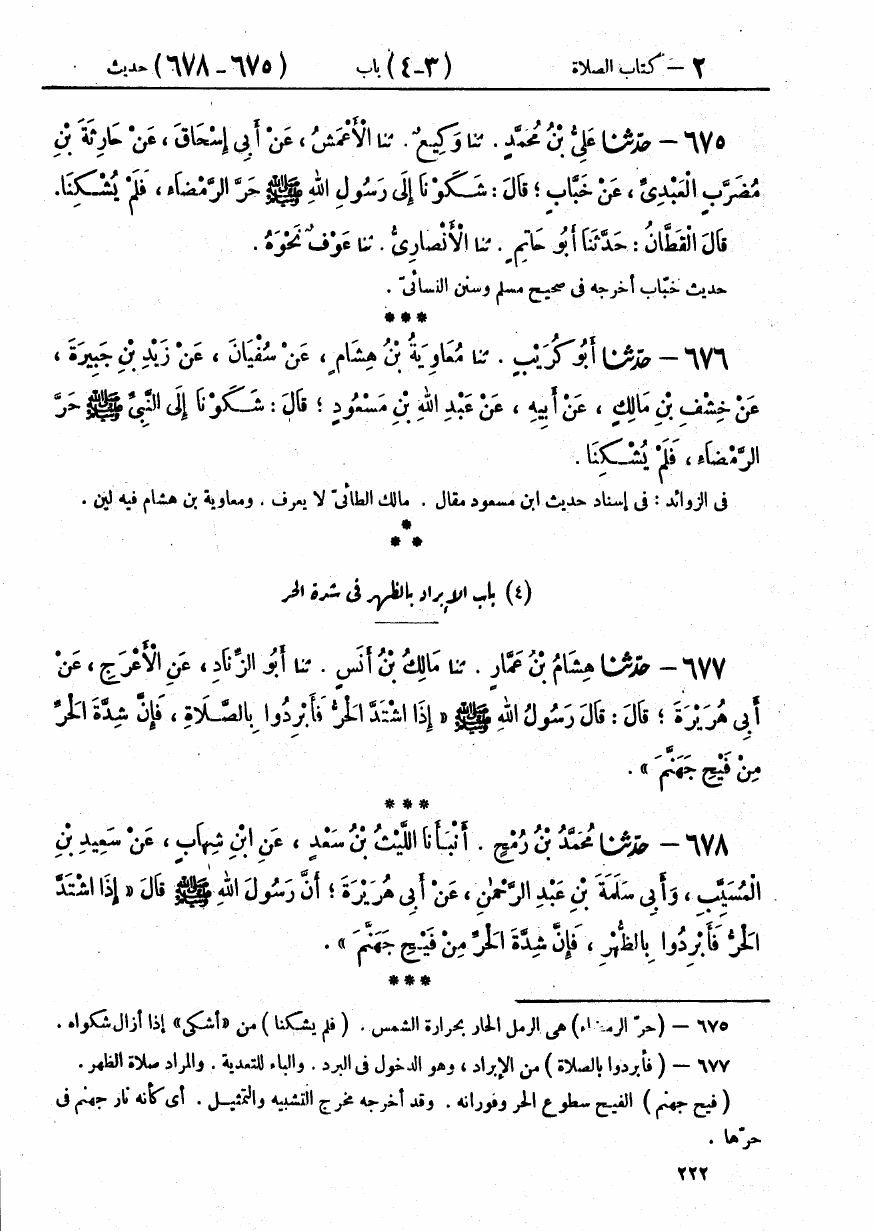 ٢ – كتاب الصلاة (٣-٤) باب (٦٧٥-٦٧٨) حديث
٦٧٥ – حَدَّثَنَا عَلِيُّ بْنُ مُحَمَّدٍ . ثنا وَكِيعٌ . ثنا الْأَعْمَشُ ، عَنْ أَبِي إِسْحَاقَ ، عَنْ حَارِثَةَ بْنِ
مُضَرِّبٍ الْعَبْدِيِّ ، عَنْ خَبَّابٍ ؛ قَالَ : شَكَوْنَا إِلَى رَسُولِ اللهِ ﷺ حَرَّ الرَّمْضَاءِ ، فَلَمْ يُشْكِنَا.
قَالَ الْقَطَّانُ : حَدَّثَنَا أَبُو حَاتِمٍ . ثنا الْأَنْصَارِيُّ . ثنا عَوْفٌ نَحْوَهُ .
حديث خبّاب أخرجه فى صحيح مسلم وسنن النسائىّ .
***
٦٧٦ – حَدَّثَنَا أَبُو كُرَيْبٍ . ثنا مُعَاوِيَةُ بْنُ هِشَامٍ ، عَنْ سُفْيَانَ ، عَنْ زَيْدِ بْنِ جَبِيرَةَ ،
عَنْ خِشْفِ بْنِ مَالِكٍ ، عَنْ أَبِيهِ ، عَنْ عَبْدِ اللهِ بْنِ مَسْعُودٍ ؛ قَالَ : شَكَوْنَا إِلَى النَّبِيِّ ﷺ حَرَّ
الرَّمْضَاءِ ، فَلَمْ يُشْكِنَا .
فى الزوائد : فى إسناد حديث ابن مسعود مقال . مالك الطائىّ لا يعرف . ومعاوية بن هشام فيه لين .
***
(٤) باب الإبراد بالظهر فى شدة الحر
٦٧٧ – حَدَّثَنَا هِشَامُ بْنُ عَمَّارٍ . ثنا مَالِكُ بْنُ أَنَسٍ . ثنا أَبُو الزِّنَادِ ، عَنِ الْأَعْرَجِ ، عَنْ
أَبِي هُرَيْرَةَ ؛ قَالَ : قَالَ رَسُولُ اللهِ ﷺ « إِذَا اشْتَدَّ الْحَرُّ فَأَبْرِدُوا بِالصَّلَاةِ ، فَإِنَّ شِدَّةَ الْحَرِّ
مِنْ فَيْحِ جَهَنَّمَ » .
***
٦٧٨ – حَدَّثَنَا مُحَمَّدُ بْنُ رُمْحٍ . أَنْبَأَنَا اللَّيْثُ بْنُ سَعْدٍ ، عَنِ ابْنِ شِهَابٍ ، عَنْ سَعِيدِ بْنِ
الْمُسَيِّبِ ، وَأَبِي سَلَمَةَ بْنِ عَبْدِ الرَّحْمٰنِ ، عَنْ أَبِي هُرَيْرَةَ ؛ أَنَّ رَسُولَ اللهِ ﷺ قَالَ « إِذَا اشْتَدَّ
الْحَرُّ فَأَبْرِدُوا بِالظُّهْرِ ، فَإِنَّ شِدَّةَ الْحَرِّ مِنْ فَيْحِ جَهَنَّمَ » .
***
٦٧٥ – (حرّ الرمضاء) هى الرمل الحار بحرارة الشمس . ( فلم يشكنا ) من «أشكى» إذا أزال شكواه .
٦٧٧ – ( فأبردوا بالصلاة ) من الإبراد ، وهو الدخول فى البرد . والباء للتعدية . والمراد صلاة الظهر .
( فيح جهنم ) الفيح سطوع الحر وفورانه . وقد أخرجه مخرج التشبيه والتمثيل . أى كأنه نار جهنم فى
حرّها .
٢٢٢